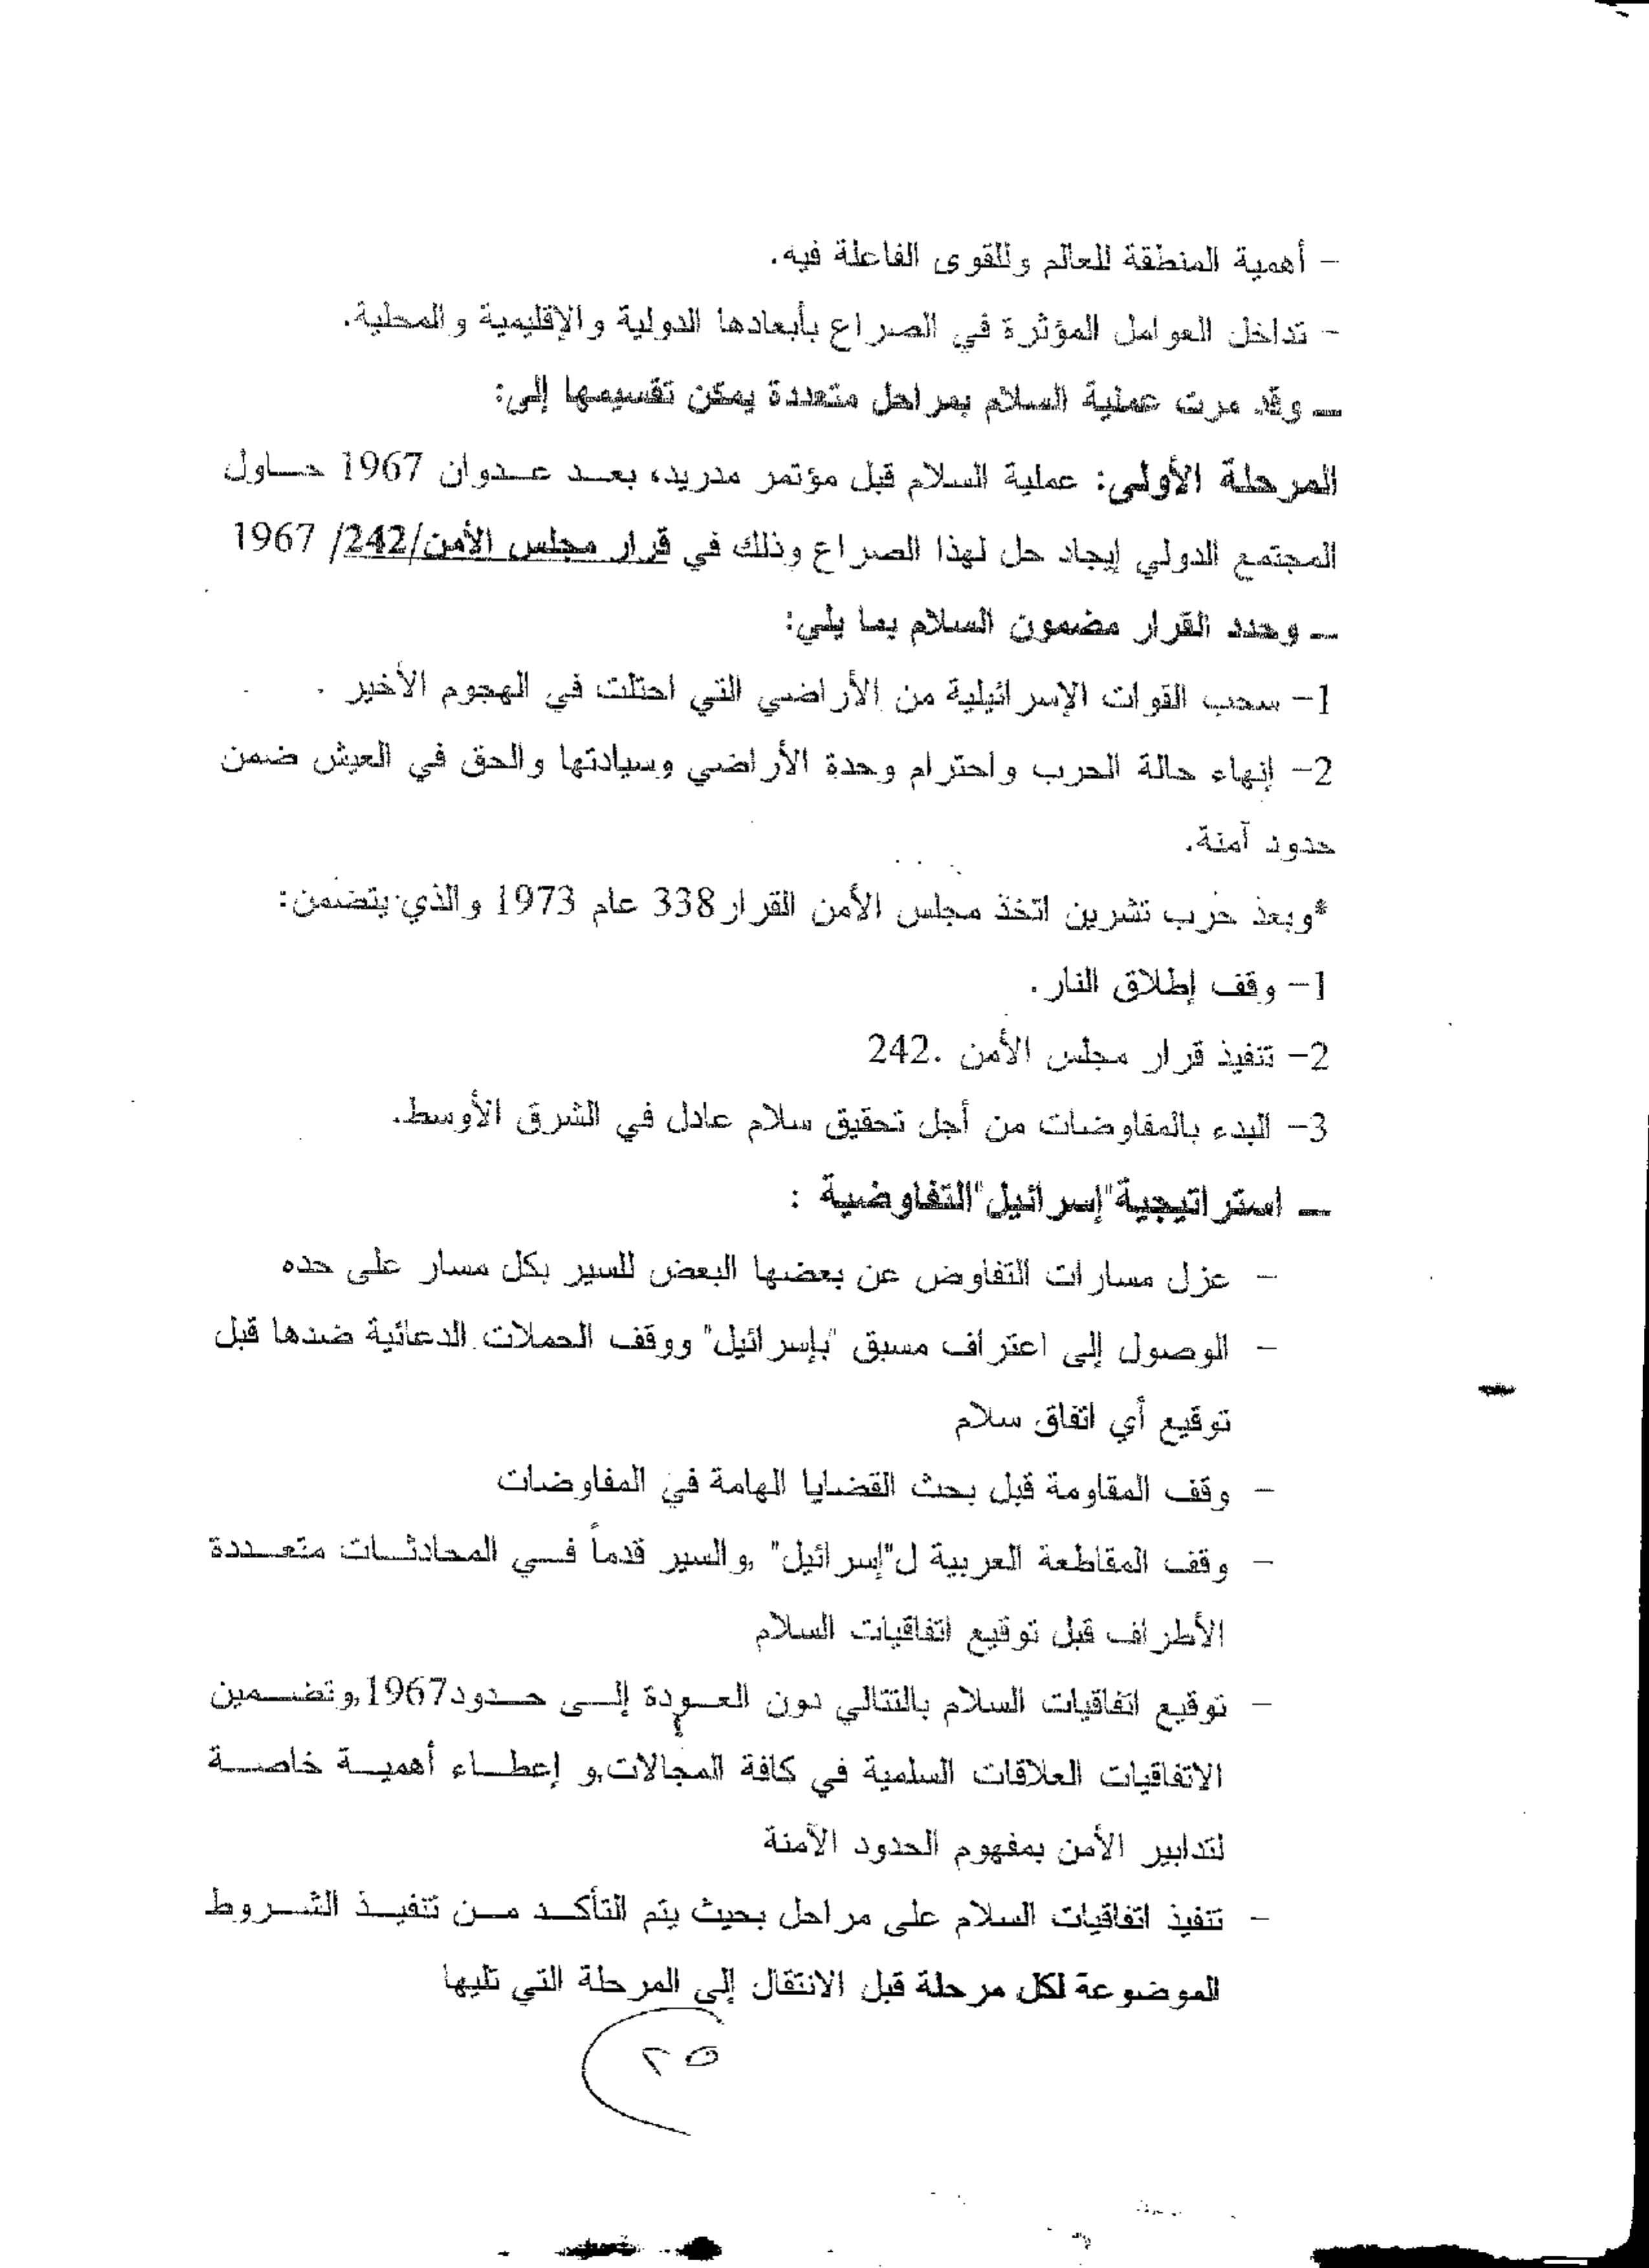 - أهمية المنطقة للعالم وللقوى الفاعلة فيه.
- تداخل العوامل المؤثرة في الصراع بأبعادها الدولية والإقليمية والمحلية.
ــ وقد مرت عملية السلام بمراحل متعددة يمكن تقسيمها إلى:
المرحلة الأولى: عملية السلام قبل مؤتمر مدريد، بعـد عـدوان 1967 حـاول
المجتمع الدولي إيجاد حل لهذا الصراع وذلك في قرار مجلس الأمن/242/ 1967
ــ وحدد القرار مضمون السلام بما يلي:
1- سحب القوات الإسرائيلية من الأراضي التي احتلت في الهجوم الأخير .
2- إنهاء حالة الحرب واحترام وحدة الأراضي وسيادتها والحق في العيش ضمن
حدود آمنة.
*وبعد حرب تشرين اتخذ مجلس الأمن القرار338 عام 1973 والذي يتضمن:
1- وقف إطلاق النار.
2- تنفيذ قرار مجلس الأمن .242
3- البدء بالمفاوضات من أجل تحقيق سلام عادل في الشرق الأوسط.
ــ استراتيجية"إسرائيل"التفاوضية :
- عزل مسارات التفاوض عن بعضها البعض للسير بكل مسار على حده
- الوصول إلى اعتراف مسبق "بإسرائيل" ووقف الحملات الدعائية ضدها قبل
توقيع أي اتفاق سلام
- وقف المقاومة قبل بحث القضايا الهامة في المفاوضات
- وقف المقاطعة العربية ل"إسرائيل" ,والسير قدماً فـي المحادثـات متعـددة
الأطراف قبل توقيع اتفاقيات السلام
- توقيع اتفاقيات السلام بالتتالي دون العـودة إلـى حـدود1967,وتضـمين
الاتفاقيات العلاقات السلمية في كافة المجالات,و إعطـاء أهميـة خاصـة
لتدابير الأمن بمفهوم الحدود الآمنة
- تنفيذ اتفاقيات السلام على مراحل بحيث يتم التأكـد مـن تنفيـذ الشـروط
الموضوعة لكل مرحلة قبل الانتقال إلى المرحلة التي تليها
٢٥